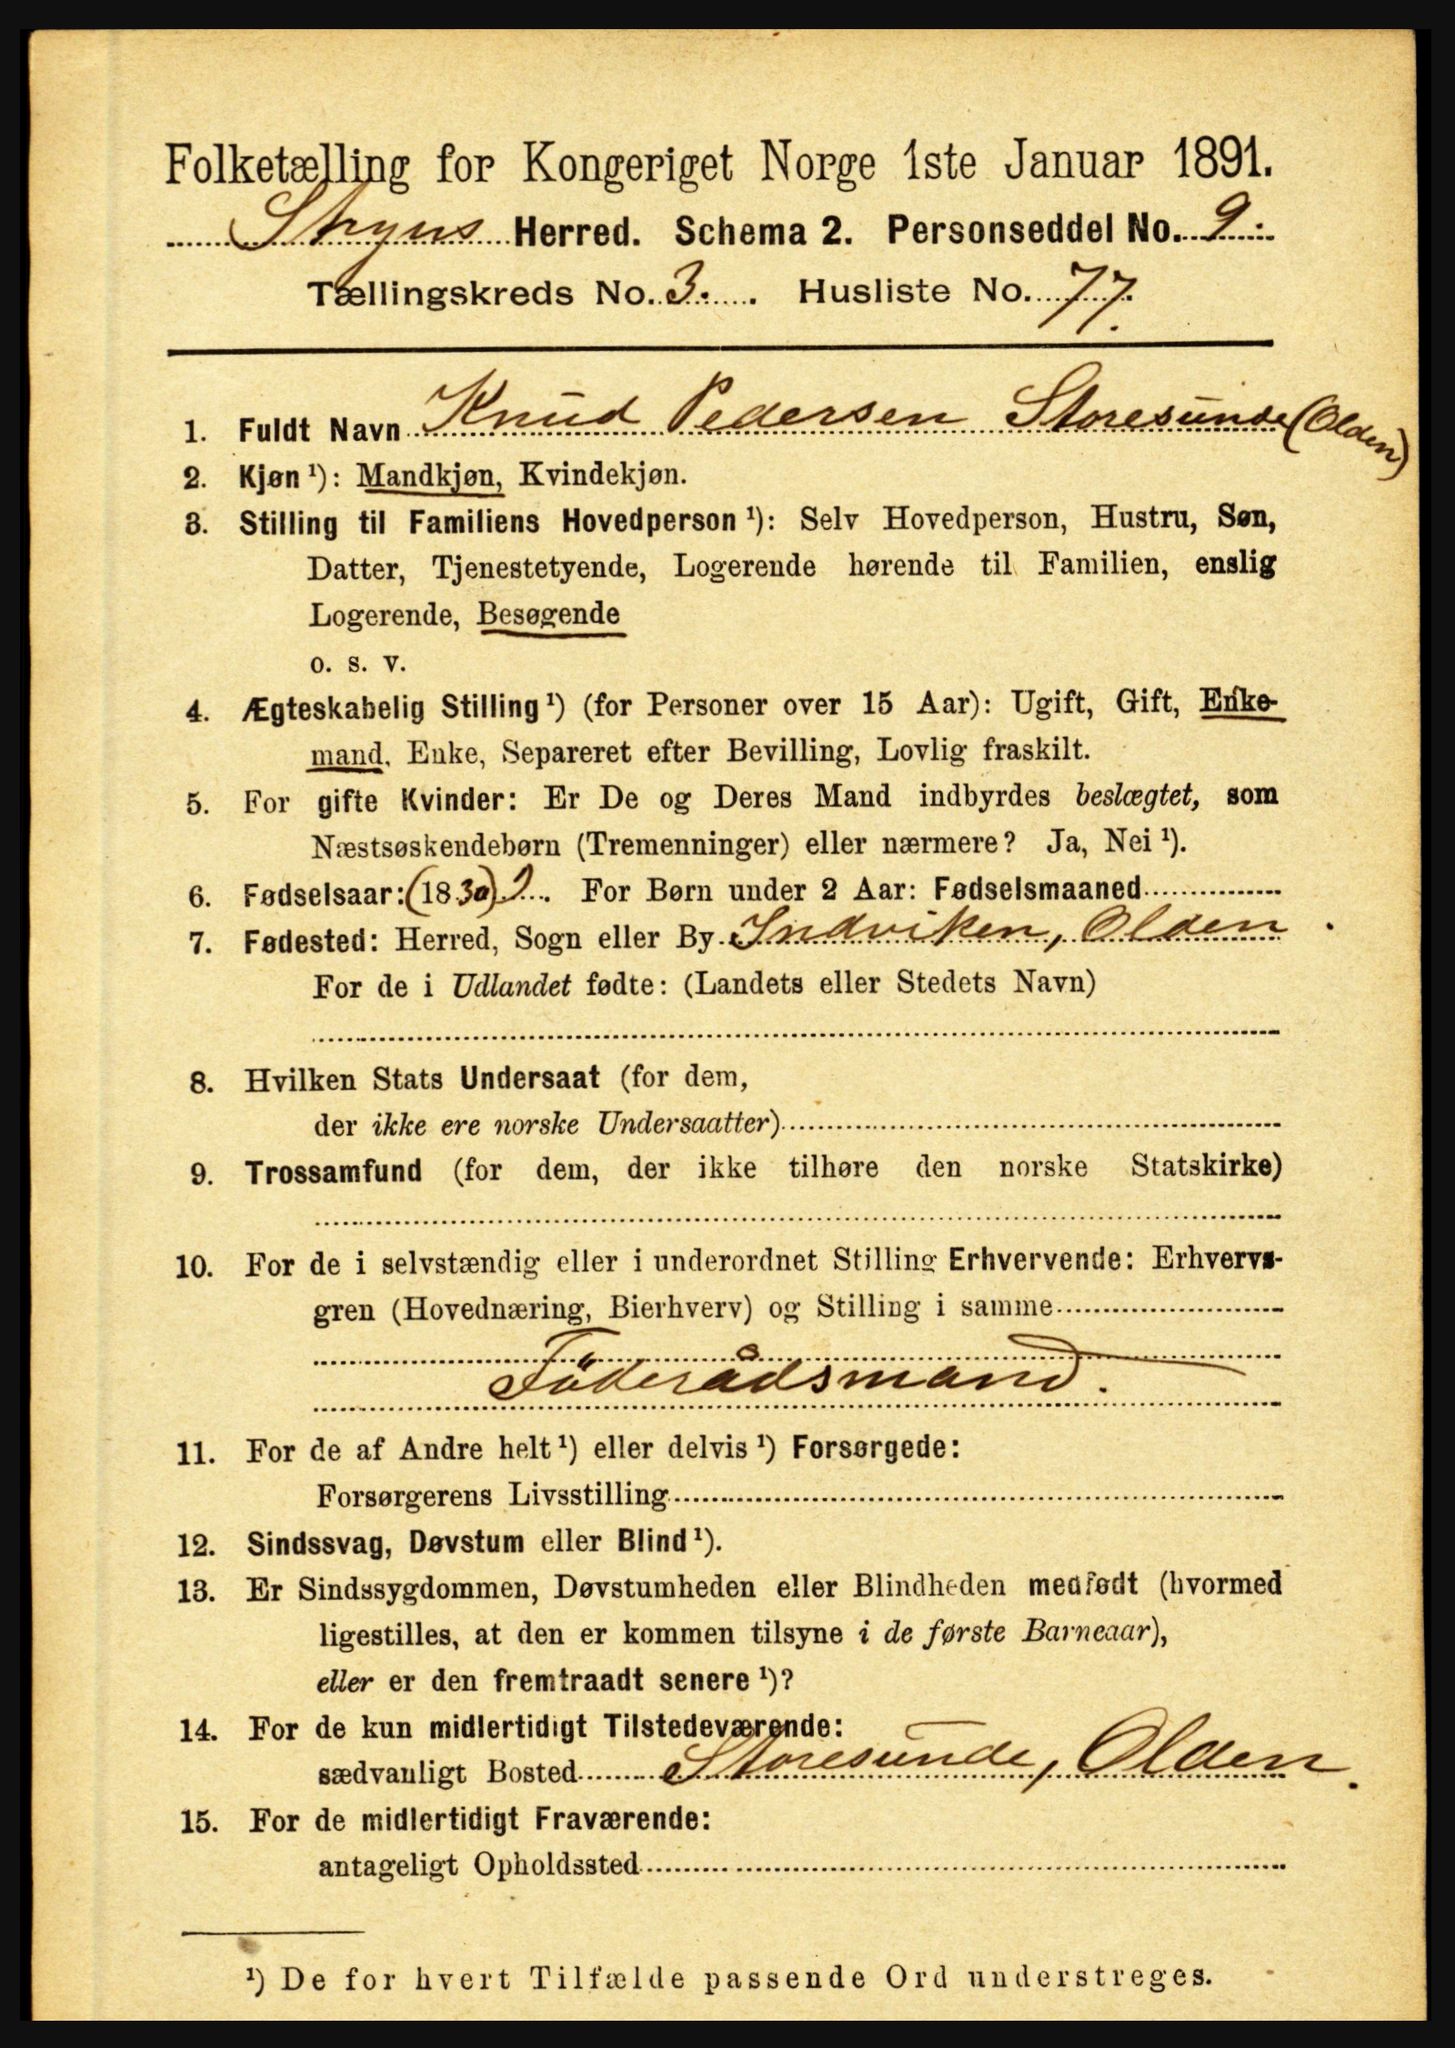 Folketælling for Kongeriget Norge 1ste Januar 1891.
Stryns Herred. Schema 2. Personseddel No. 9.
Tællingskreds No. 3. Husliste No. 77.
1. Fuldt Navn Knud Pedersen Storesunde (Olden)
2. Kjøn ¹): Mandkjøn, Kvindekjøn.
3. Stilling til Familiens Hovedperson ¹): Selv Hovedperson, Hustru, Søn,
Datter, Tjenestetyende, Logerende hørende til Familien, enslig
Logerende, Besøgende
o. s. v.
4. Ægteskabelig Stilling ¹) (for Personer over 15 Aar): Ugift, Gift, Enke-
mand, Enke, Separeret efter Bevilling, Lovlig fraskilt.
5. For gifte Kvinder: Er De og Deres Mand indbyrdes beslægtet, som
Næstsøskendebørn (Tremenninger) eller nærmere? Ja, Nei ¹).
6. Fødselsaar: (1830) ?. For Børn under 2 Aar: Fødselsmaaned
7. Fødested: Herred, Sogn eller By Indviken, Olden.
For de i Udlandet fødte: (Landets eller Stedets Navn)
8. Hvilken Stats Undersaat (for dem,
der ikke ere norske Undersaatter)
9. Trossamfund (for dem, der ikke tilhøre den norske Statskirke)
10. For de i selvstændig eller i underordnet Stilling Erhvervende: Erhvervs-
gren (Hovednæring, Bierhverv) og Stilling i samme
Föderådsmand.
11. For de af Andre helt ¹) eller delvis ¹) Forsørgede:
Forsørgerens Livsstilling
12. Sindssvag, Døvstum eller Blind ¹).
13. Er Sindssygdommen, Døvstumheden eller Blindheden medfødt (hvormed
ligestilles, at den er kommen tilsyne i de første Barneaar),
eller er den fremtraadt senere ¹)?
14. For de kun midlertidigt Tilstedeværende:
sædvanligt Bosted Storesunde, Olden.
15. For de midlertidigt Fraværende:
antageligt Opholdssted
¹) De for hvert Tilfælde passende Ord understreges.